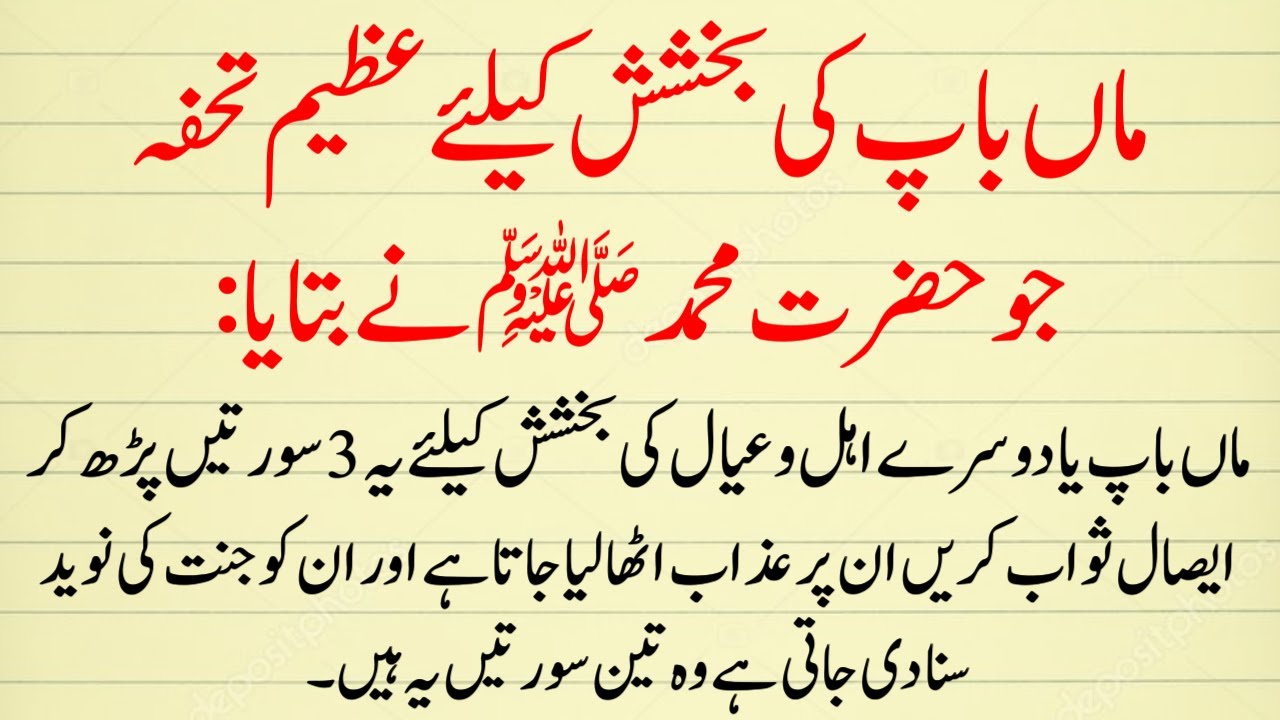 ماں باپ کی بخشش کیلئے عظیم تحفہ
جو حضرت محمد ﷺ نے بتایا:
ماں باپ یا دوسرے اہل و عیال کی بخشش کیلئے یہ 3 سورتیں پڑھ کر
ایصال ثواب کریں ان پر عذاب اٹھا لیا جاتا ہے اور ان کو جنت کی نوید
سنا دی جاتی ہے وہ تین سورتیں یہ ہیں۔
depositphotos